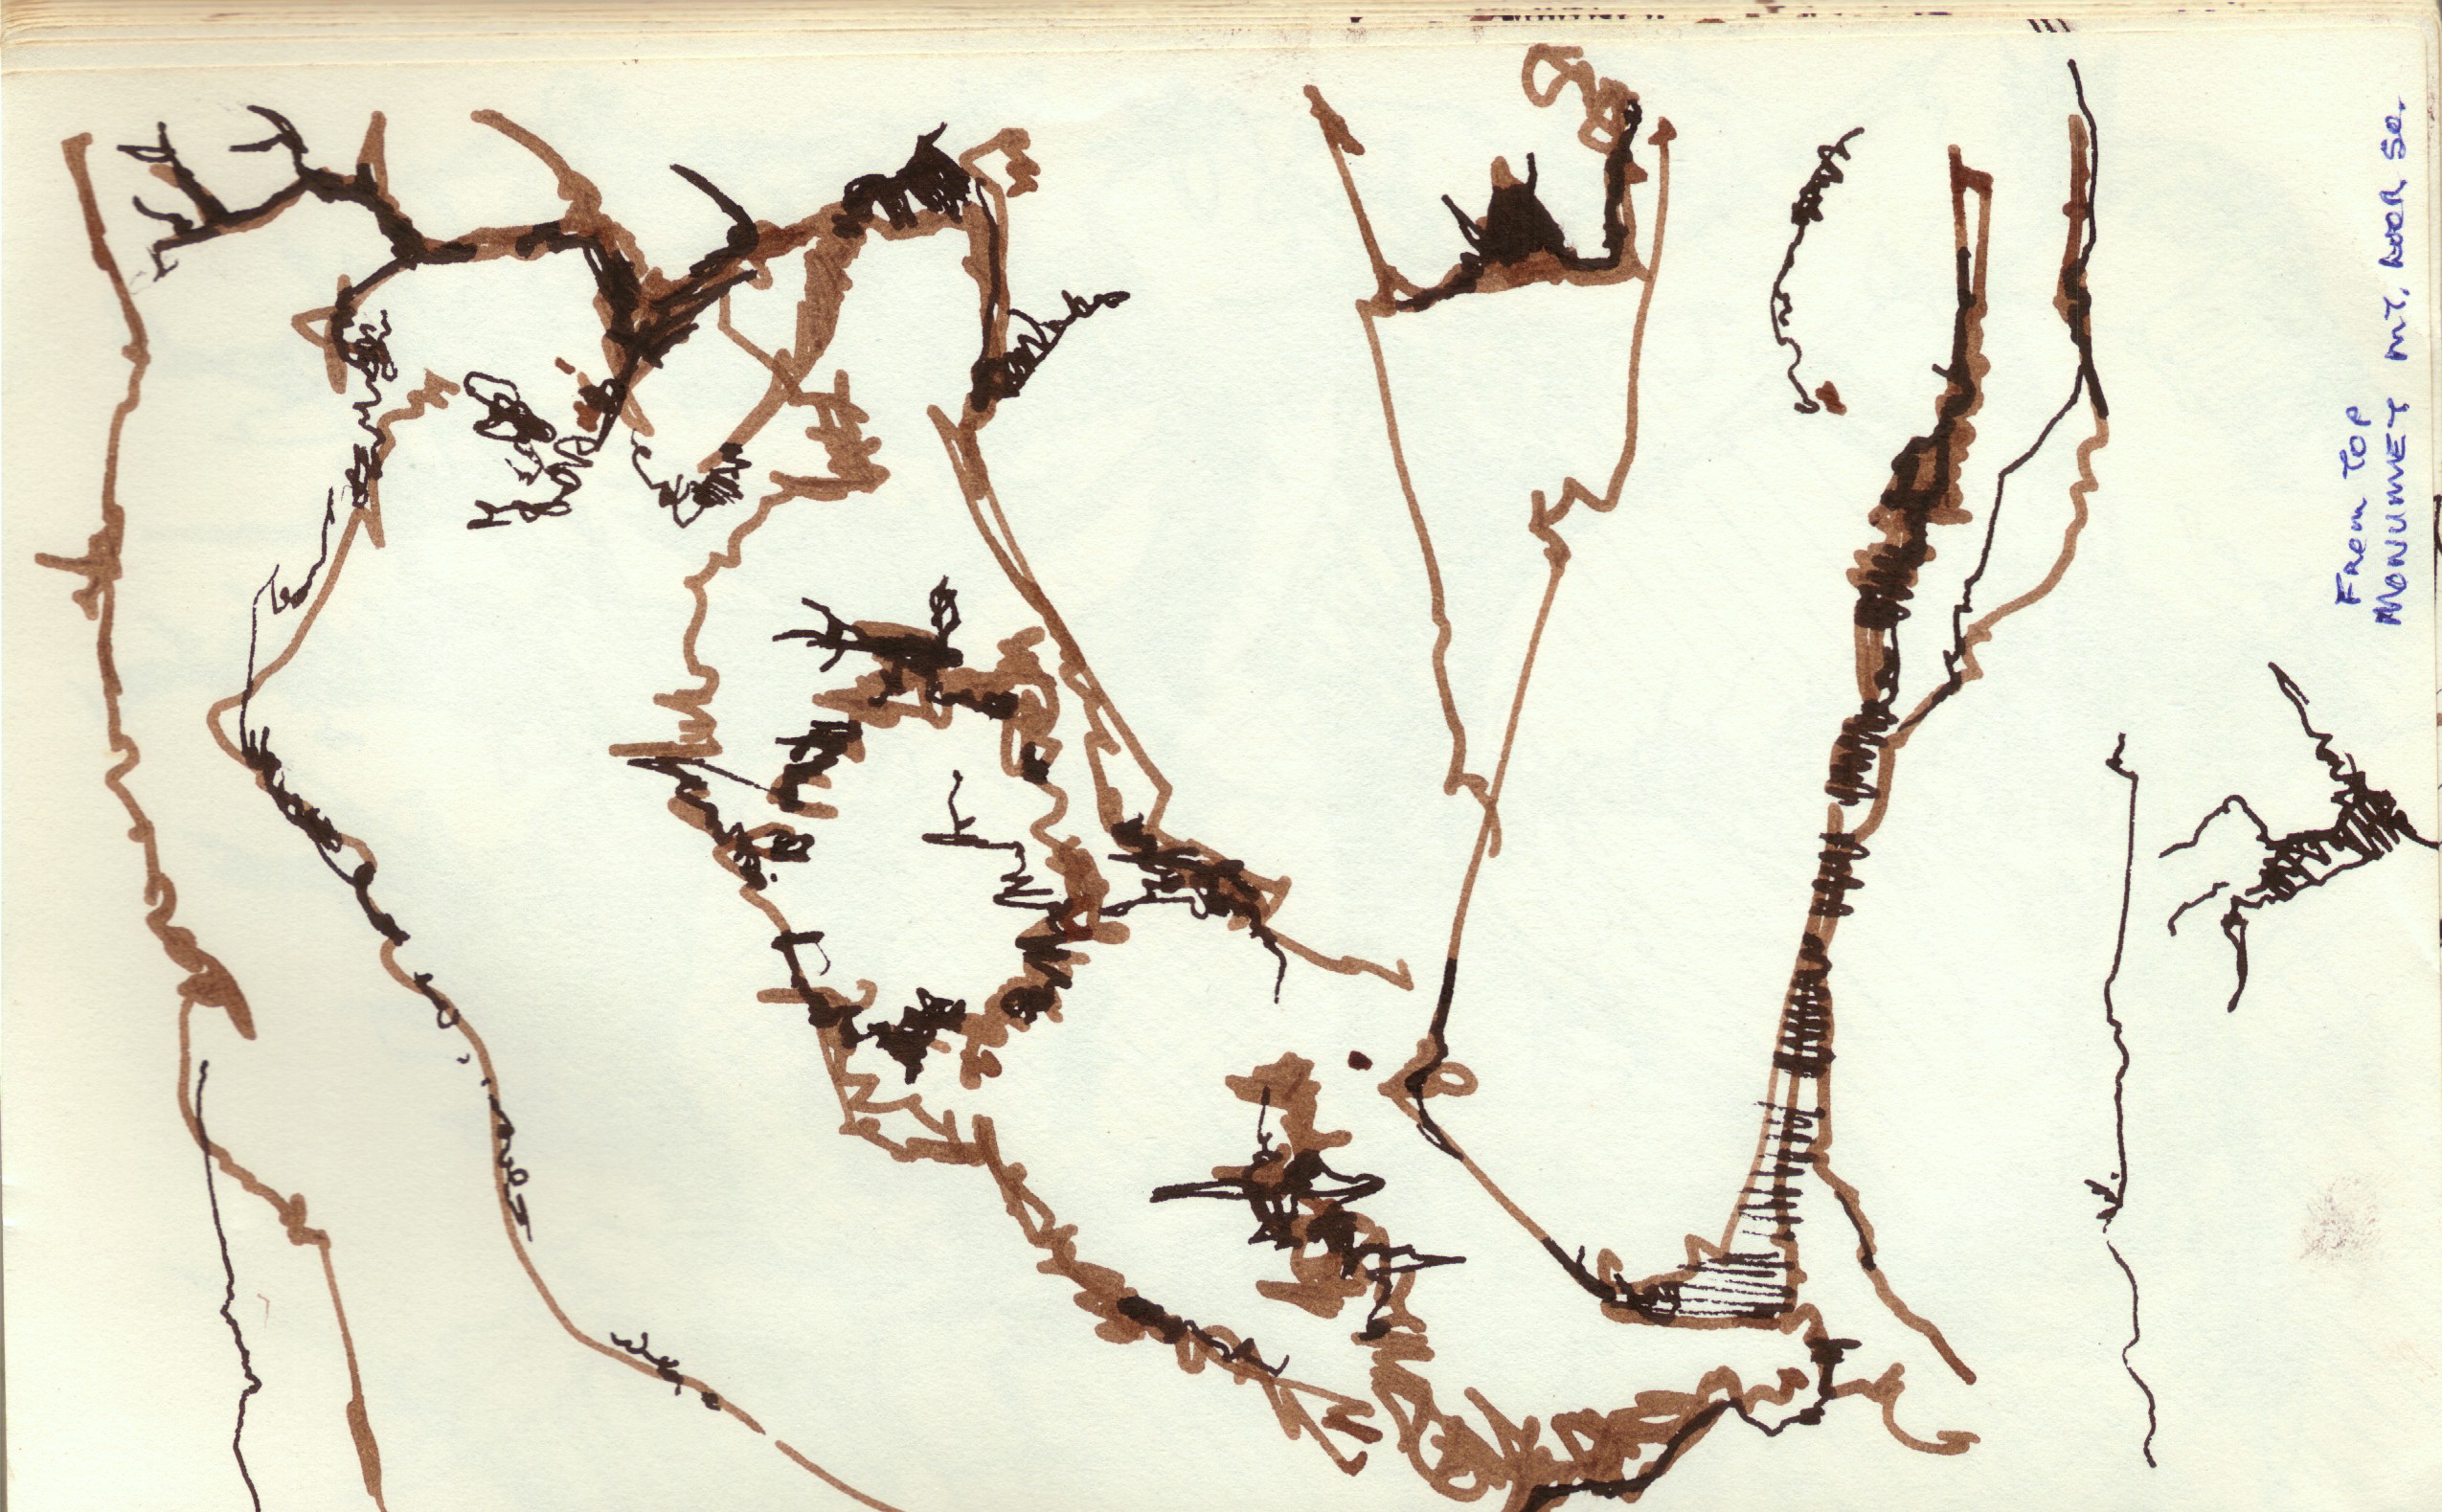 From TOP
MONUMNET MT, LOOK SO.